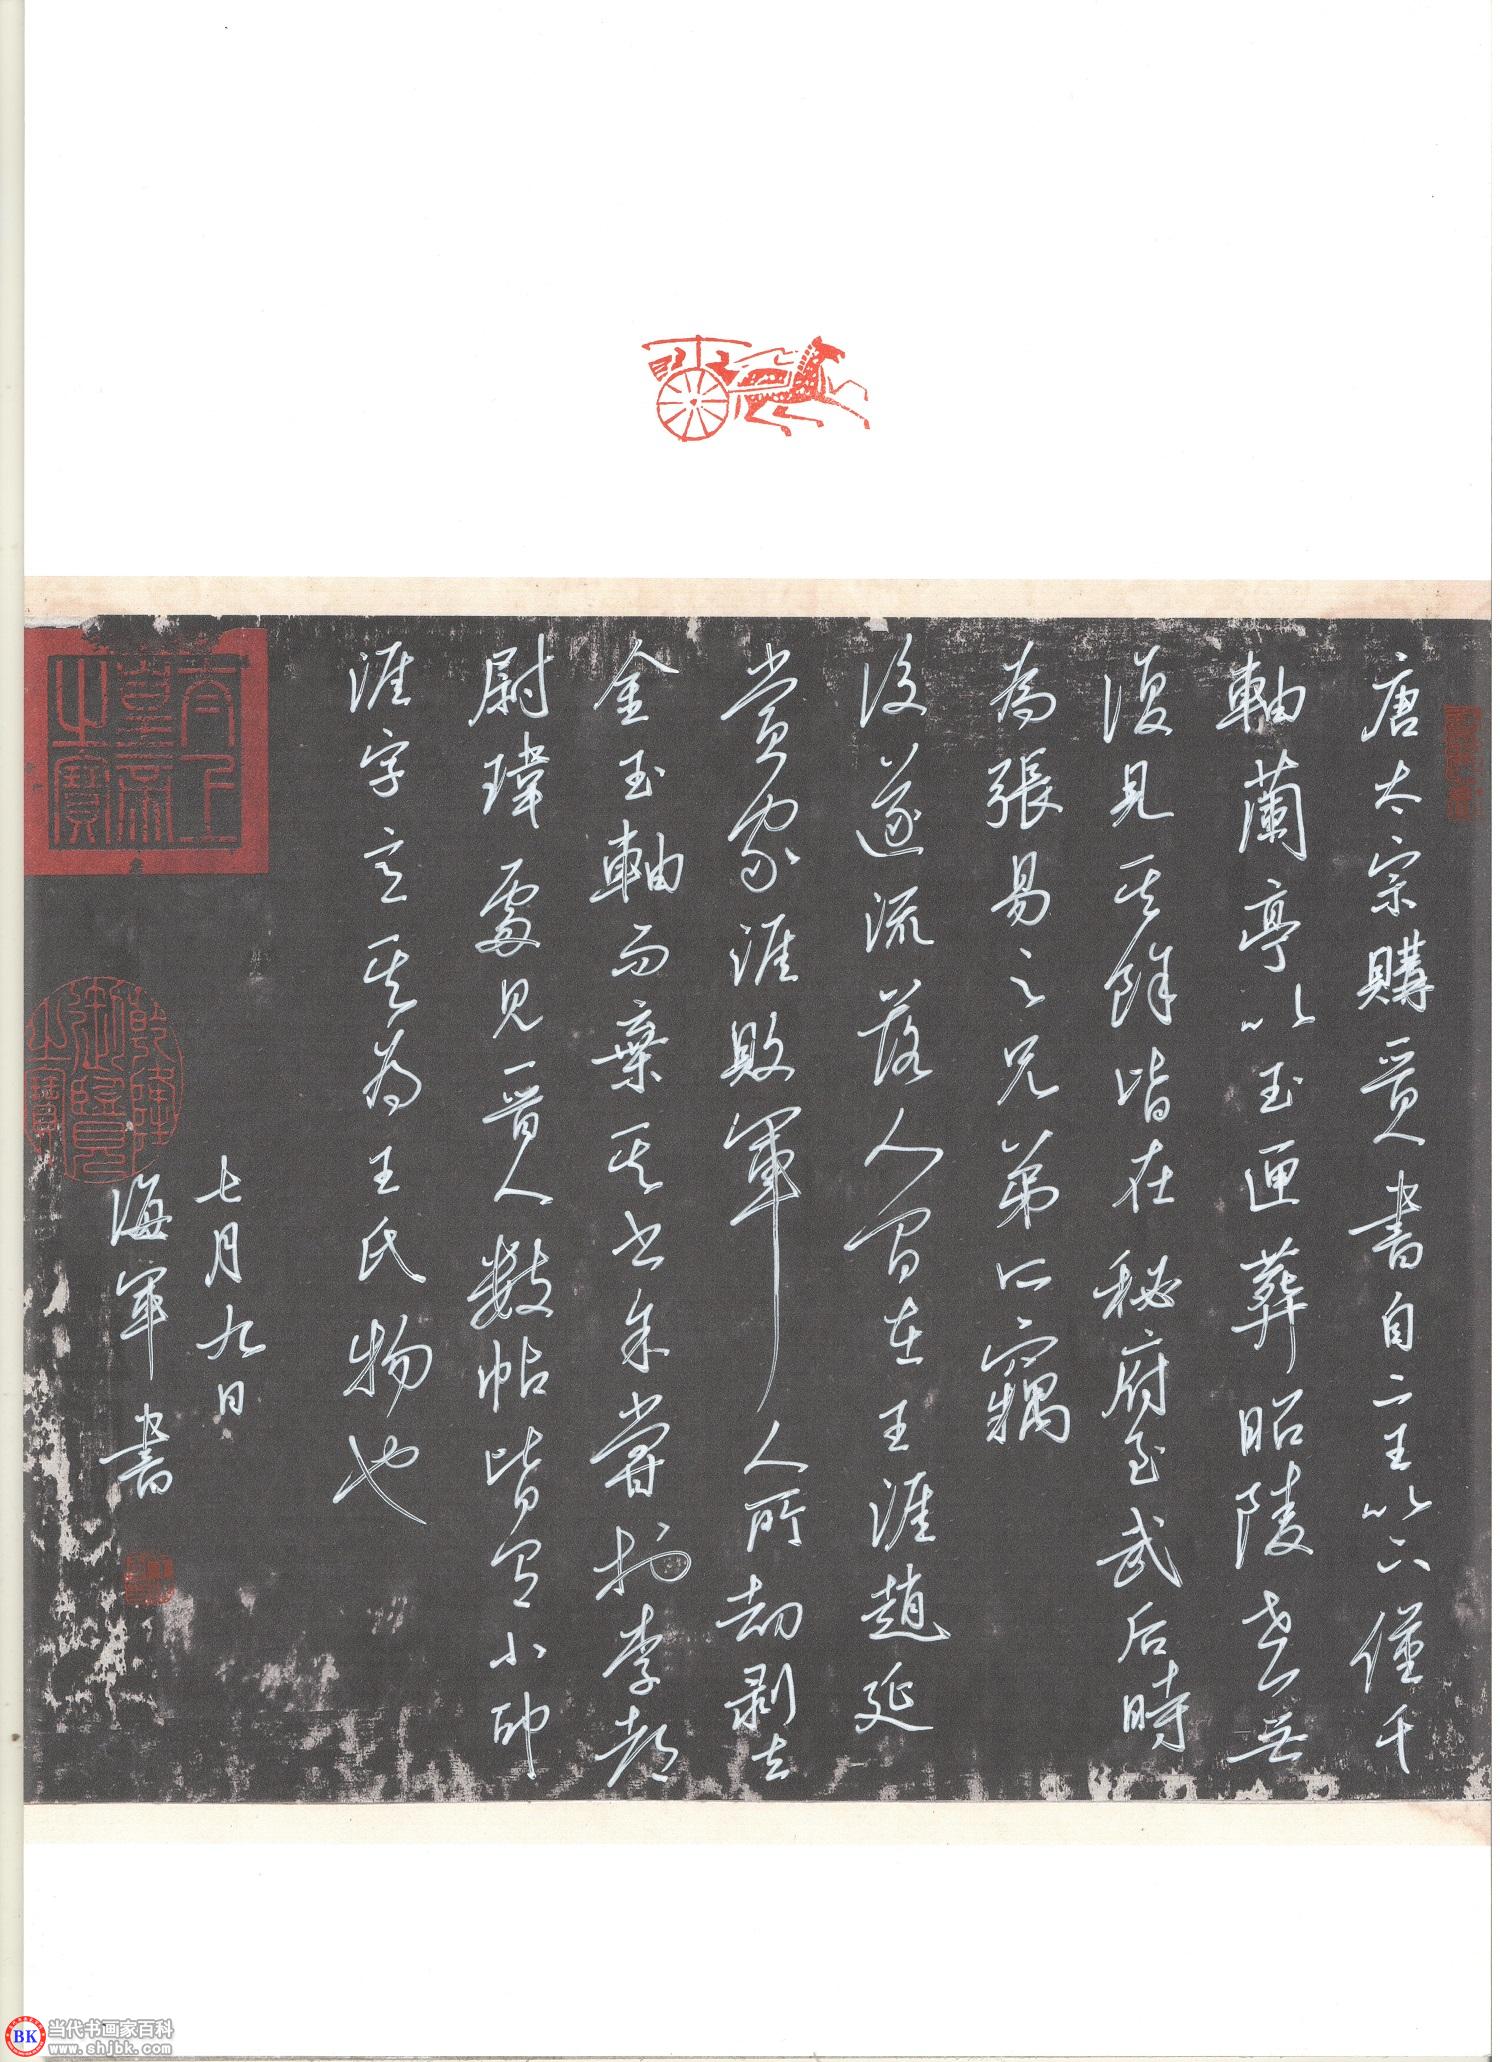 唐太宗購晉人書自二王以下僅千
軸蘭亭以玉匣葬昭陵世無
復見其餘皆在秘府至武后時
為張易之兄弟所竊
後遂流落人間在王涯趙延
賞家涯敗軍人所劫剥去
金玉軸而棄其書余嘗於李都
尉瑋處見晉人數帖皆有小印
涯字意其為王氏物也
七月九日
海軍書
太上皇帝之寶
乾隆御覽之寶
BK
当代书画家百科
www.shjbk.com